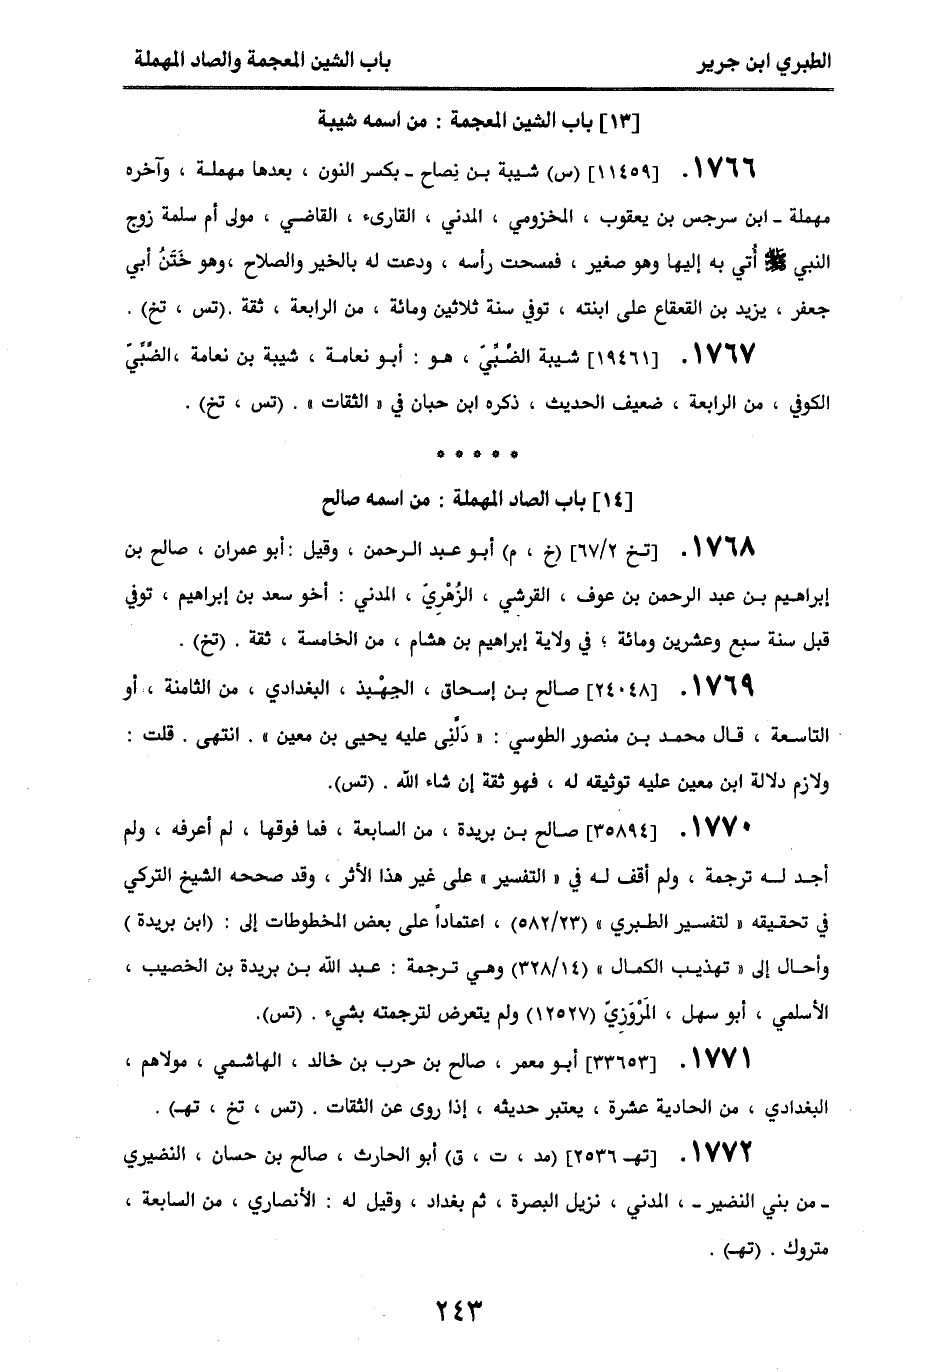 الطبري ابن جرير
باب الشين المعجمة والصاد المهملة
[١٣] باب الشين المعجمة : من اسمه شيبة
١٧٦٦. [١١٤٥٩] (س) شيبة بن نِصاح ـ بكسر النون ، بعدها مهملة ، وآخره
مهملة ـ ابن سرجس بن يعقوب ، المخزومي ، المدني ، القارىء ، القاضي ، مولى أم سلمة زوج
النبي ﷺ أُتي به إليها وهو صغير ، فمسحت رأسه ، ودعت له بالخير والصلاح ،وهو خَتَنُ أبي
جعفر ، يزيد بن القعقاع على ابنته ، توفي سنة ثلاثين ومائة ، من الرابعة ، ثقة .(تس ، تخ) .
١٧٦٧. [١٩٤٦١] شيبة الضَّبِّيّ ، هو : أبو نعامة ، شيبة بن نعامة ،الضَّبِّيّ
الكوفي ، من الرابعة ، ضعيف الحديث ، ذكره ابن حبان في « الثقات » . (تس ، تخ) .
* * * * *
[١٤] باب الصاد المهملة : من اسمه صالح
١٧٦٨. [تخ ٦٧/٢] (خ ، م) أبو عبد الرحمن ، وقيل :أبو عمران ، صالح بن
إبراهيم بن عبد الرحمن بن عوف ، القرشي ، الزُهْرِيّ ، المدني : أخو سعد بن إبراهيم ، توفي
قبل سنة سبع وعشرين ومائة ؛ في ولاية إبراهيم بن هشام ، من الخامسة ، ثقة . (تخ) .
١٧٦٩. [٢٤٠٤٨] صالح بن إسحاق ، الجِهْبذ ، البغدادي ، من الثامنة ، أو
التاسعة ، قال محمد بن منصور الطوسي : « دَلَّنِي عليه يحيى بن معين » . انتهى . قلت :
ولازم دلالة ابن معين عليه توثيقه له ، فهو ثقة إن شاء الله . (تس).
١٧٧٠. [٣٥٨٩٤] صالح بن بريدة ، من السابعة ، فما فوقها ، لم أعرفه ، ولم
أجد له ترجمة ، ولم أقف له في « التفسير » على غير هذا الأثر ، وقد صححه الشيخ التركي
في تحقيقه « لتفسير الطبري » (٥٨٢/٢٣) ، اعتماداً على بعض المخطوطات إلى : (ابن بريدة )
وأحال إلى « تهذيب الكمال » (٣٢٨/١٤) وهي ترجمة : عبد الله بن بريدة بن الخصيب ،
الأسلمي ، أبو سهل ، المَرْوَزِيّ (١٢٥٢٧) ولم يتعرض لترجمته بشيء . (تس).
١٧٧١. [٣٣٦٥٣] أبو معمر ، صالح بن حرب بن خالد ، الهاشمي ، مولاهم ،
البغدادي ، من الحادية عشرة ، يعتبر حديثه ، إذا روى عن الثقات . (تس ، تخ ، تهـ) .
١٧٧٢. [تهـ ٢٥٣٦] (مد ، ت ، ق) أبو الحارث ، صالح بن حسان ، النضيري
ـ من بني النضير ـ ، المدني ، نزيل البصرة ، ثم بغداد ، وقيل له : الأنصاري ، من السابعة ،
متروك . (تهـ) .
٢٤٣